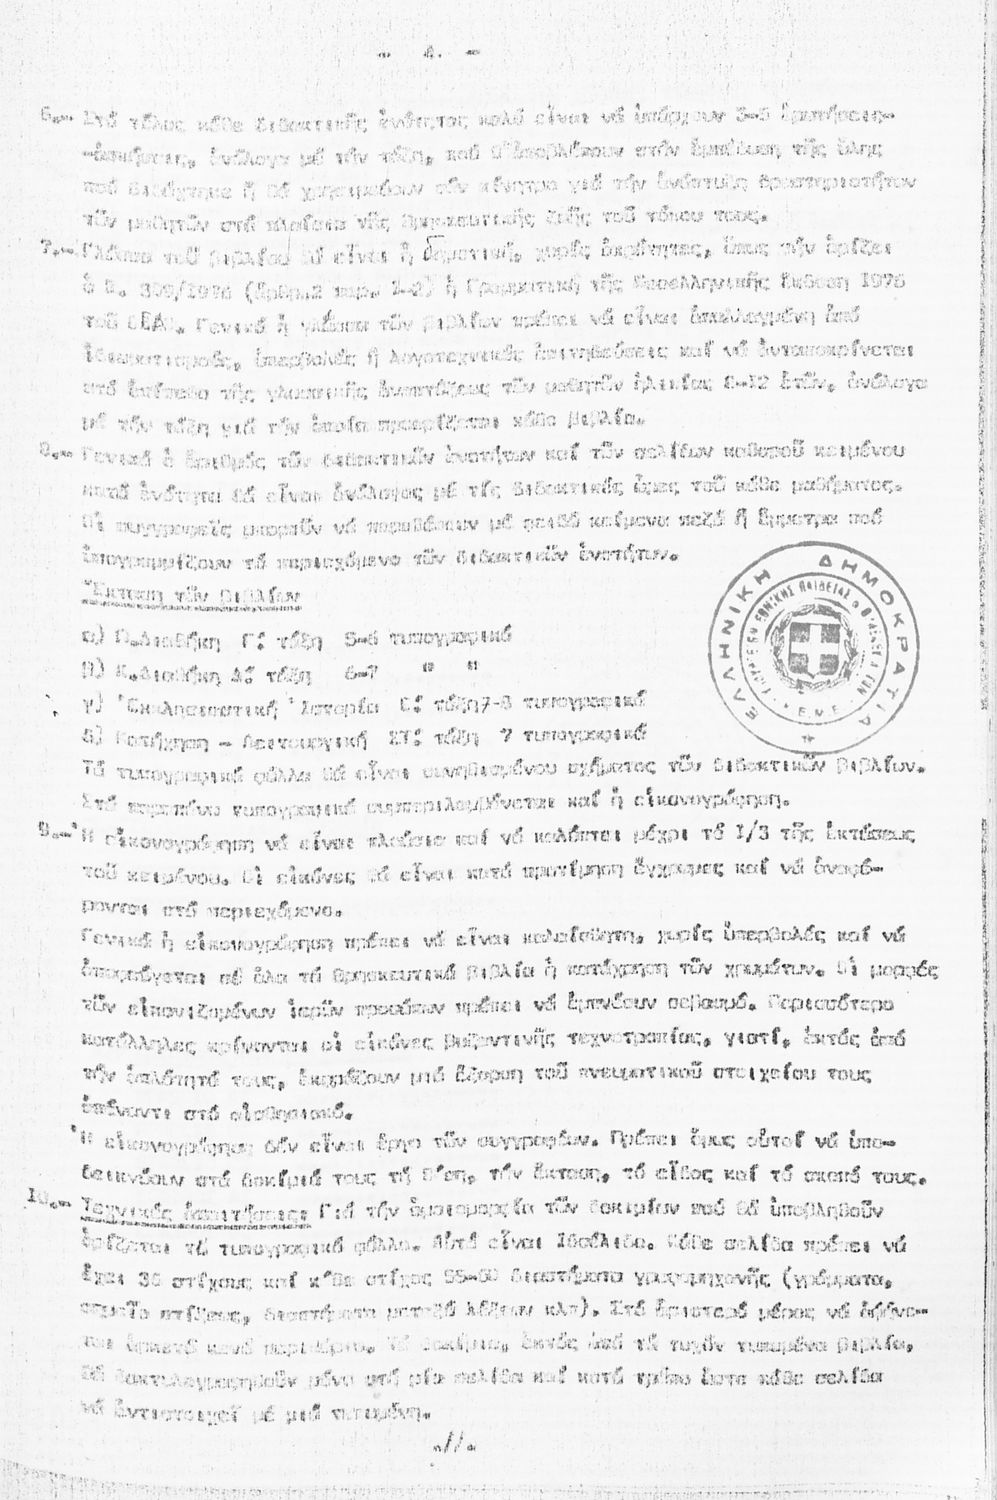 - 4. -
6.- Στό τέλος κάθε διδακτικῆς ἑνότητας καλό εἶναι νά ὑπάρχουν 3-5 ἐρωτήσεις-
-ἀσκήσεις, ἀνάλογα μέ τήν τάξη, πού θ'ἀποβλέπουν στήν ἐμπέδωση τῆς ὕλης
πού διδάχτηκε ἤ θά χρησιμεύουν σάν κίνητρο γιά τήν ἀνάπτυξη δραστηριοτήτων
τῶν μαθητῶν στά πλαίσια τῆς θρησκευτικῆς ζωῆς τοῦ τόπου τους.
7.- Γλώσσα τοῦ βιβλίου θά εἶναι ἡ δημοτική, χωρίς ἀκρότητες, ὅπως τήν ὁρίζει
ὁ Ν. 309/1976 (ἄρθρ.2 παρ. 1-2) ἡ Γραμματική τῆς Νεοελληνικῆς ἔκδοση 1976
τοῦ ΟΕΔΒ. Γενικά ἡ γλώσσα τῶν βιβλίων πρέπει νά εἶναι ἀπαλλαγμένη ἀπό
ἰδιωματισμούς, ὑπερβολές ἤ λογοτεχνικές ἐπιτηδεύσεις καί νά ἀνταποκρίνεται
στό ἐπίπεδο τῆς γλωσσικῆς ἀναπτύξεως τῶν μαθητῶν ἡλικίας 8-12 ἐτῶν, ἀνάλογα
μέ τήν τάξη γιά τήν ὁποία προορίζεται κάθε βιβλίο.
8.- Γενικά ὁ ἀριθμός τῶν διδακτικῶν ἑνοτήτων καί τῶν σελίδων καθαροῦ κειμένου
κατά ἑνότητα θά εἶναι ἀνάλογος μέ τίς διδακτικές ὧρες τοῦ κάθε μαθήματος.
Οἱ συγγραφεῖς μποροῦν νά παραθέσουν μέ φειδώ κείμενα πεζά ἤ ἔμμετρα πού
ὑπογραμμίζουν τό περιεχόμενο τῶν διδακτικῶν ἑνοτήτων.
Ἔκταση τῶν βιβλίων
α) Π.Διαθήκη Γ΄ τάξη 5-6 τυπογραφικά
β) Κ.Διαθήκη Δ΄ τάξη 6-7 " "
γ) Ἐκκλησιαστική Ἱστορία Ε΄ τάξη 7-8 τυπογραφικά
δ) Κατήχηση - Λειτουργική ΣΤ΄ τάξη 7 τυπογραφικά
Τά τυπογραφικά φύλλα θά εἶναι συνηθισμένου σχήματος τῶν διδακτικῶν βιβλίων.
Στά παραπάνω τυπογραφικά συμπεριλαμβάνεται καί ἡ εἰκονογράφηση.
9.- Ἡ εἰκονογράφηση νά εἶναι πλούσια καί νά καλύπτει μέχρι τό 1/3 τῆς ἐκτάσεως
τοῦ κειμένου. Οἱ εἰκόνες θά εἶναι κατά προτίμηση ἔγχρωμες καί νά ἀναφέ-
ρονται στό περιεχόμενο.
Γενικά ἡ εἰκονογράφηση πρέπει νά εἶναι καλαίσθητη, χωρίς ὑπερβολές καί νά
ἀποφεύγεται σέ ὅλα τά θρησκευτικά βιβλία ἡ κατάχρηση τῶν χρωμάτων. Οἱ μορφές
τῶν εἰκονιζομένων ἱερῶν προσώπων πρέπει νά ἐμπνέουν σεβασμό. Περισσότερο
κατάλληλες κρίνονται οἱ εἰκόνες βυζαντινῆς τεχνοτροπίας, γιατί, ἐκτός ἀπό
τήν ἁπλότητά τους, ἐκφράζουν μιά ἔξαρση τοῦ πνευματικοῦ στοιχείου τους
ἀπέναντι στό αἰσθησιακό.
Ἡ εἰκονογράφηση δέν εἶναι ἔργο τῶν συγγραφέων. Πρέπει ὅμως αὐτοί νά ὑπο-
δεικνύουν στά δοκίμιά τους τή θέση, τήν ἔκταση, τό εἶδος καί τό σκοπό τους.
10.- Τεχνικές ἀπαιτήσεις: Γιά τήν ὁμοιομορφία τῶν δοκιμίων πού θά ὑποβληθοῦν
ὁρίζεται τό τυπογραφικό φύλλο. Αὐτό εἶναι 16σέλιδο. Κάθε σελίδα πρέπει νά
ἔχει 30 στίχους καί κάθε στίχος 55-60 διαστήματα γραφομηχανῆς (γράμματα,
σημεῖα στίξεως, διαστήματα μεταξύ λέξεων κλπ). Στό ἀριστερό μέρος νά ἀφήνε-
ται ἀρκετό κενό περιθώριο. Τά δοκίμια, ἐκτός ἀπό τά τυχόν τυπωμένα βιβλία,
θά δακτυλογραφηθοῦν μόνο στή μία σελίδα καί κατά τρόπο ὥστε κάθε σελίδα
νά ἀντιστοιχεῖ μέ μιά τυπωμένη.
.//.
ΕΛΛΗΝΙΚΗ ΔΗΜΟΚΡΑΤΙΑ
ΕΘΝΙΚΗΣ ΠΑΙΔΕΙΑΣ